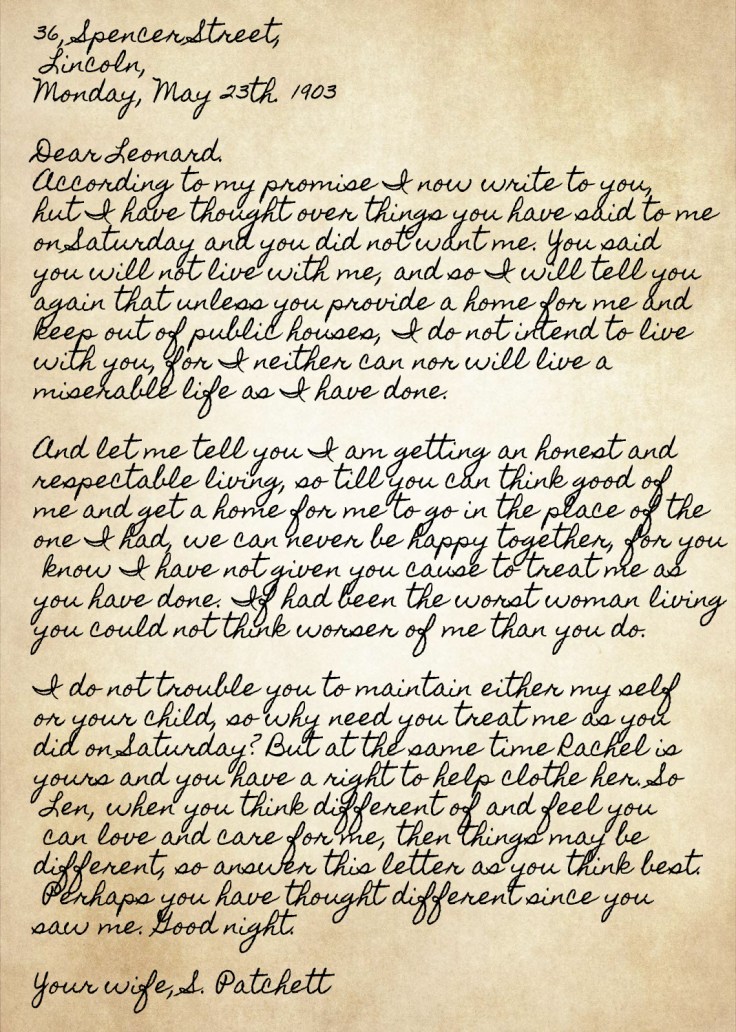 36, Spencer Street,
Lincoln,
Monday, May 23th. 1903
Dear Leonard.
According to my promise I now write to you,
hut I have thought over things you have said to me
on Saturday and you did not want me. You said
you will not live with me, and so I will tell you
again that unless you provide a home for me and
keep out of public houses, I do not intend to live
with you, for I neither can nor will live a
miserable life as I have done.
And let me tell you I am getting an honest and
respectable living, so till you can think good of
me and get a home for me to go in the place of the
one I had, we can never be happy together, for you
know I have not given you cause to treat me as
you have done. If had been the worst woman living
you could not think worser of me than you do.
I do not trouble you to maintain either my self
or your child, so why need you treat me as you
did on Saturday? But at the same time Rachel is
yours and you have a right to help clothe her. So
Len, when you think different of and feel you
can love and care for me, then things may be
different, so answer this letter as you think best.
Perhaps you have thought different since you
saw me. Good night.
Your wife, S. Patchett